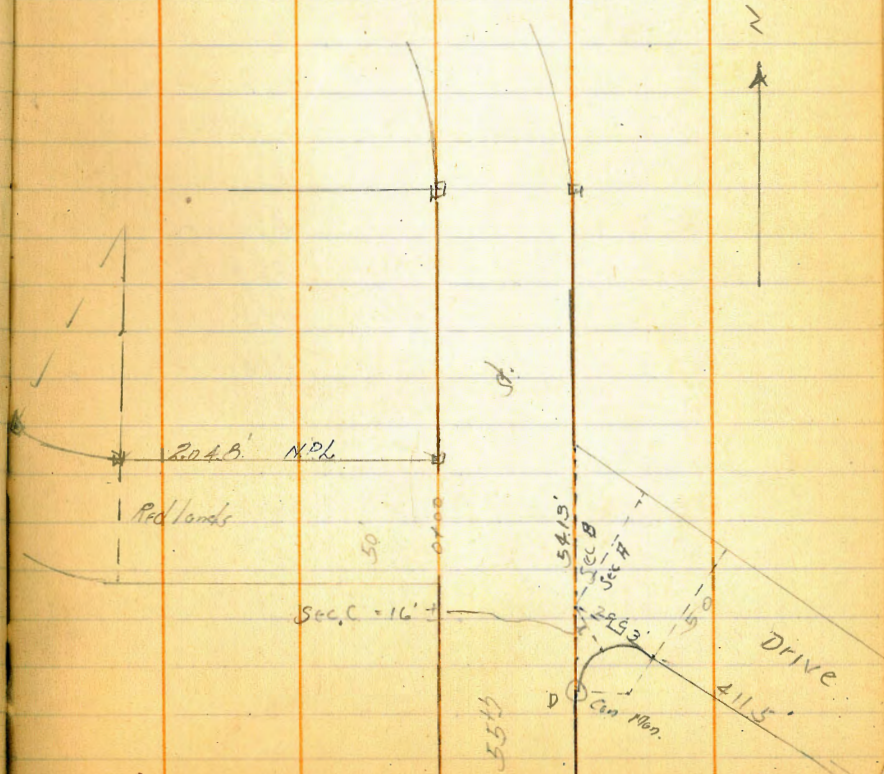 N
St.
204.8' N.P.L.
Redlands
50'
0+00
54.13'
Sec B
Sec A
50
Sec. C = 16' ±
29.53'
Drive
D
Con Mon.
411.5'
55th